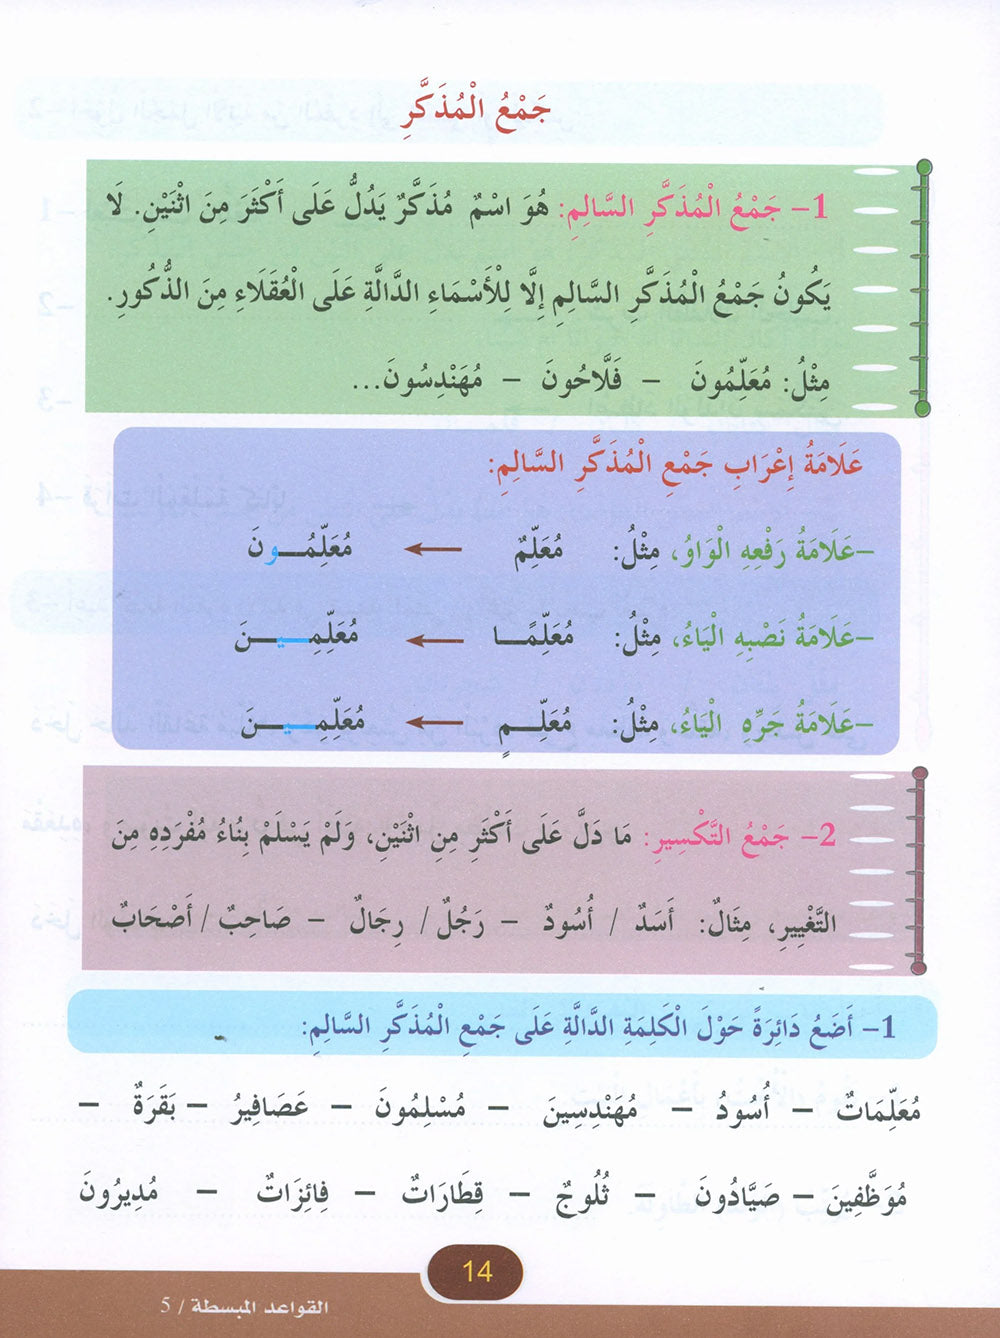 جَمْعُ الْمُذَكَّرِ
1- جَمْعُ الْمُذَكَّرِ السَّالِمِ: هُوَ اسْمٌ مُذَكَّرٌ يَدُلُّ عَلَى أَكْثَرَ مِنَ اثْنَيْنِ. لَا
يَكُونُ جَمْعُ الْمُذَكَّرِ السَّالِمِ إِلَّا لِلْأَسْمَاءِ الدَّالَةِ عَلَى الْعُقَلَاءِ مِنَ الذُّكُورِ.
مِثْلُ: مُعَلِّمُونَ - فَلَّاحُونَ - مُهَنْدِسُونَ...
عَلَامَةُ إِعْرَابِ جَمْعِ الْمُذَكَّرِ السَّالِمِ:
-عَلَامَةُ رَفْعِهِ الْوَاوُ، مِثْلُ: مُعَلِّمٌ ← مُعَلِّمُــونَ
-عَلَامَةُ نَصْبِهِ الْيَاءُ، مِثْلُ: مُعَلِّمًــا ← مُعَلِّمِــيــنَ
-عَلَامَةُ جَرِّهِ الْيَاءُ، مِثْلُ: مُعَلِّــمٍ ← مُعَلِّمِــيــنَ
2- جَمْعُ التَّكْسِيرِ: مَا دَلَّ عَلَى أَكْثَرِ مِنِ اثْنَيْنِ، وَلَمْ يَسْلَمْ بِنَاءُ مُفْرَدِهِ مِنَ
التَّغْيِيرِ، مِثَالٌ: أَسَدٌ / أُسُودٌ - رَجُلٌ / رِجَالٌ - صَاحِبٌ / أَصْحَابٌ
1- أَضَعُ دَائِرَةً حَوْلَ الْكَلِمَةِ الدَّالَةِ عَلَى جَمْعِ الْمُذَكَّرِ السَّالِمِ:
مُعَلِّمَاتٌ - أُسُودُ - مُهَنْدِسِينَ - مُسْلِمُونَ - عَصَافِيرُ - بَقَرَةٌ -
مُوَظَّفِينَ - صَيَّادُونَ - ثُلُوجٌ - قِطَارَاتٌ - فِائِزَاتٌ - مُدِيرُونَ
14
القواعد المبسطة / 5